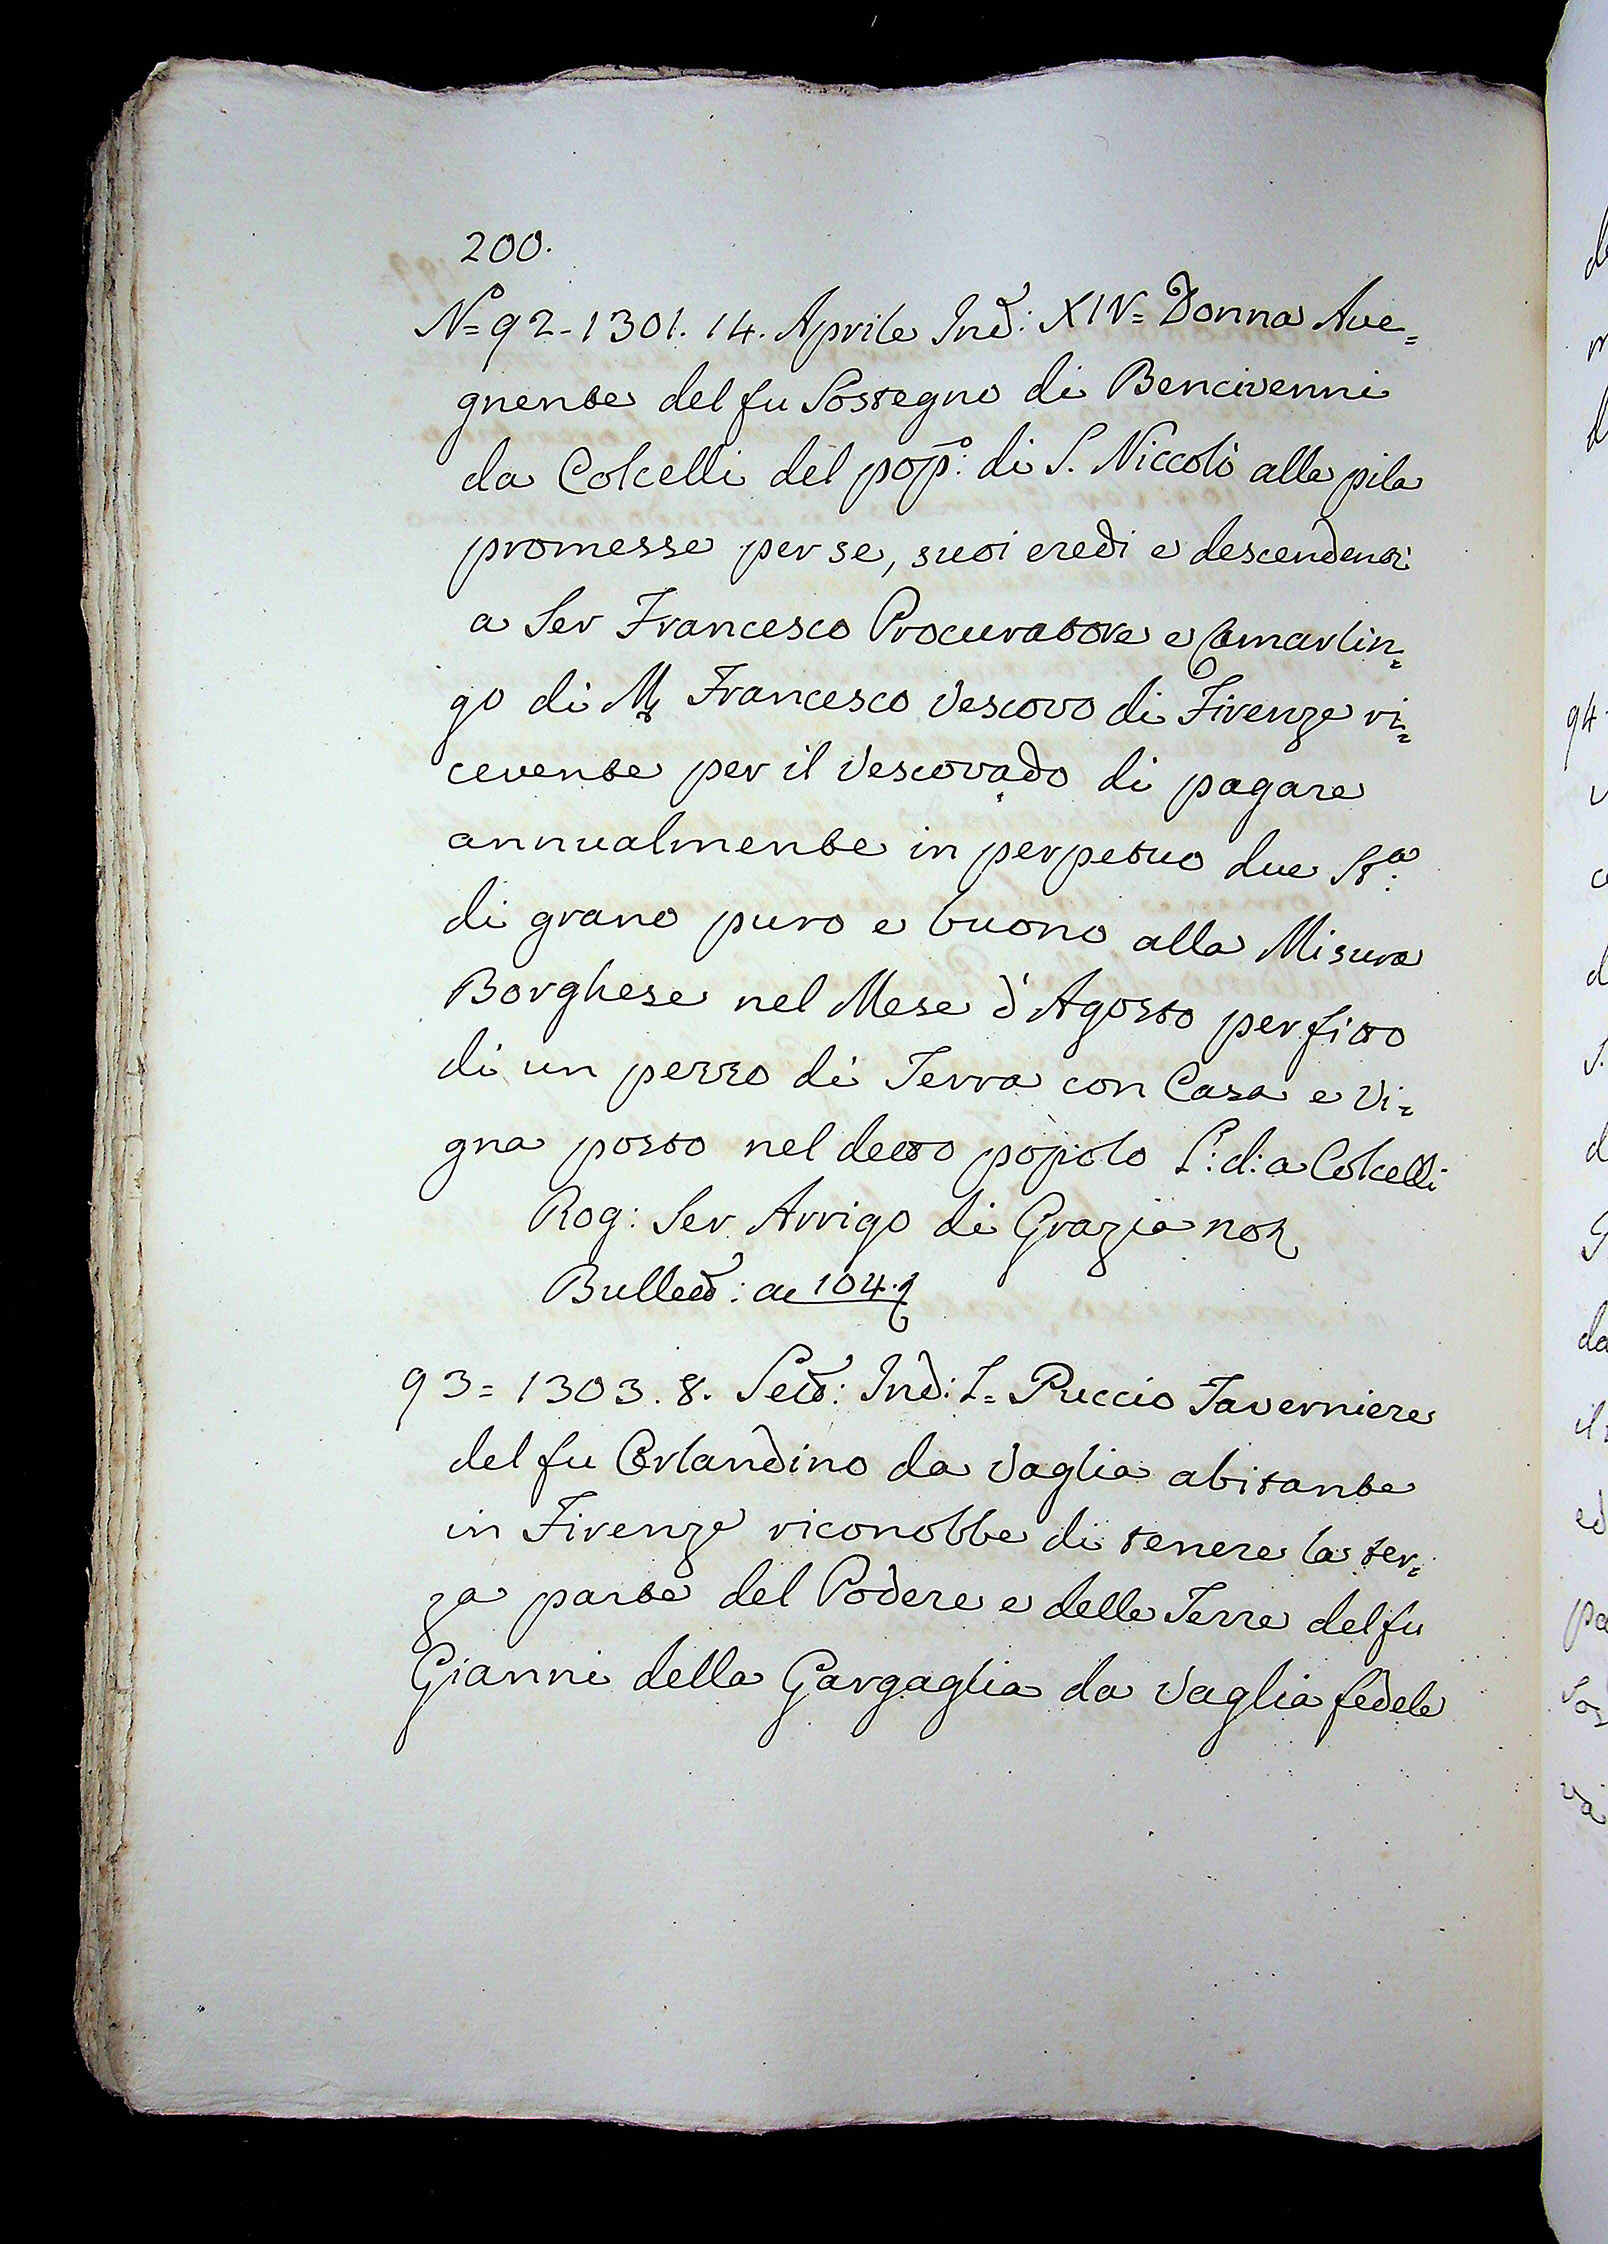 200.
N.º 92 - 1301. 14. Aprile Ind: XIV = Donna Ave=
gnente del fu Sostegno di Bencivenni
da Colcelli del popº: di S. Niccolò alla pila
promesse per se, suoi eredi e descendenti
a Ser Francesco Procuratore e Camarlin=
go di M. Francesco Vescovo di Firenze ri=
cevente per il Vescovado di pagare
annualmente in perpetuo due Stª:
di grano puro e buono alla Misura
Borghese nel Mese d'Agosto per fitto
di un pezzo di Terra con Casa e Vi=
gna posto nel detto popolo L: d: a Colcelli
Rog: Ser Arrigo di Grazia not
Bullett: ac 104.
93 = 1303. 8. Sett: Ind: I = Puccio Taverniere
del fu Orlandino da Vaglia abitante
in Firenze riconobbe di tenere la ter=
za parte del Podere e delle Terre del fu
Gianni della Gargaglia da Vaglia fedele
94